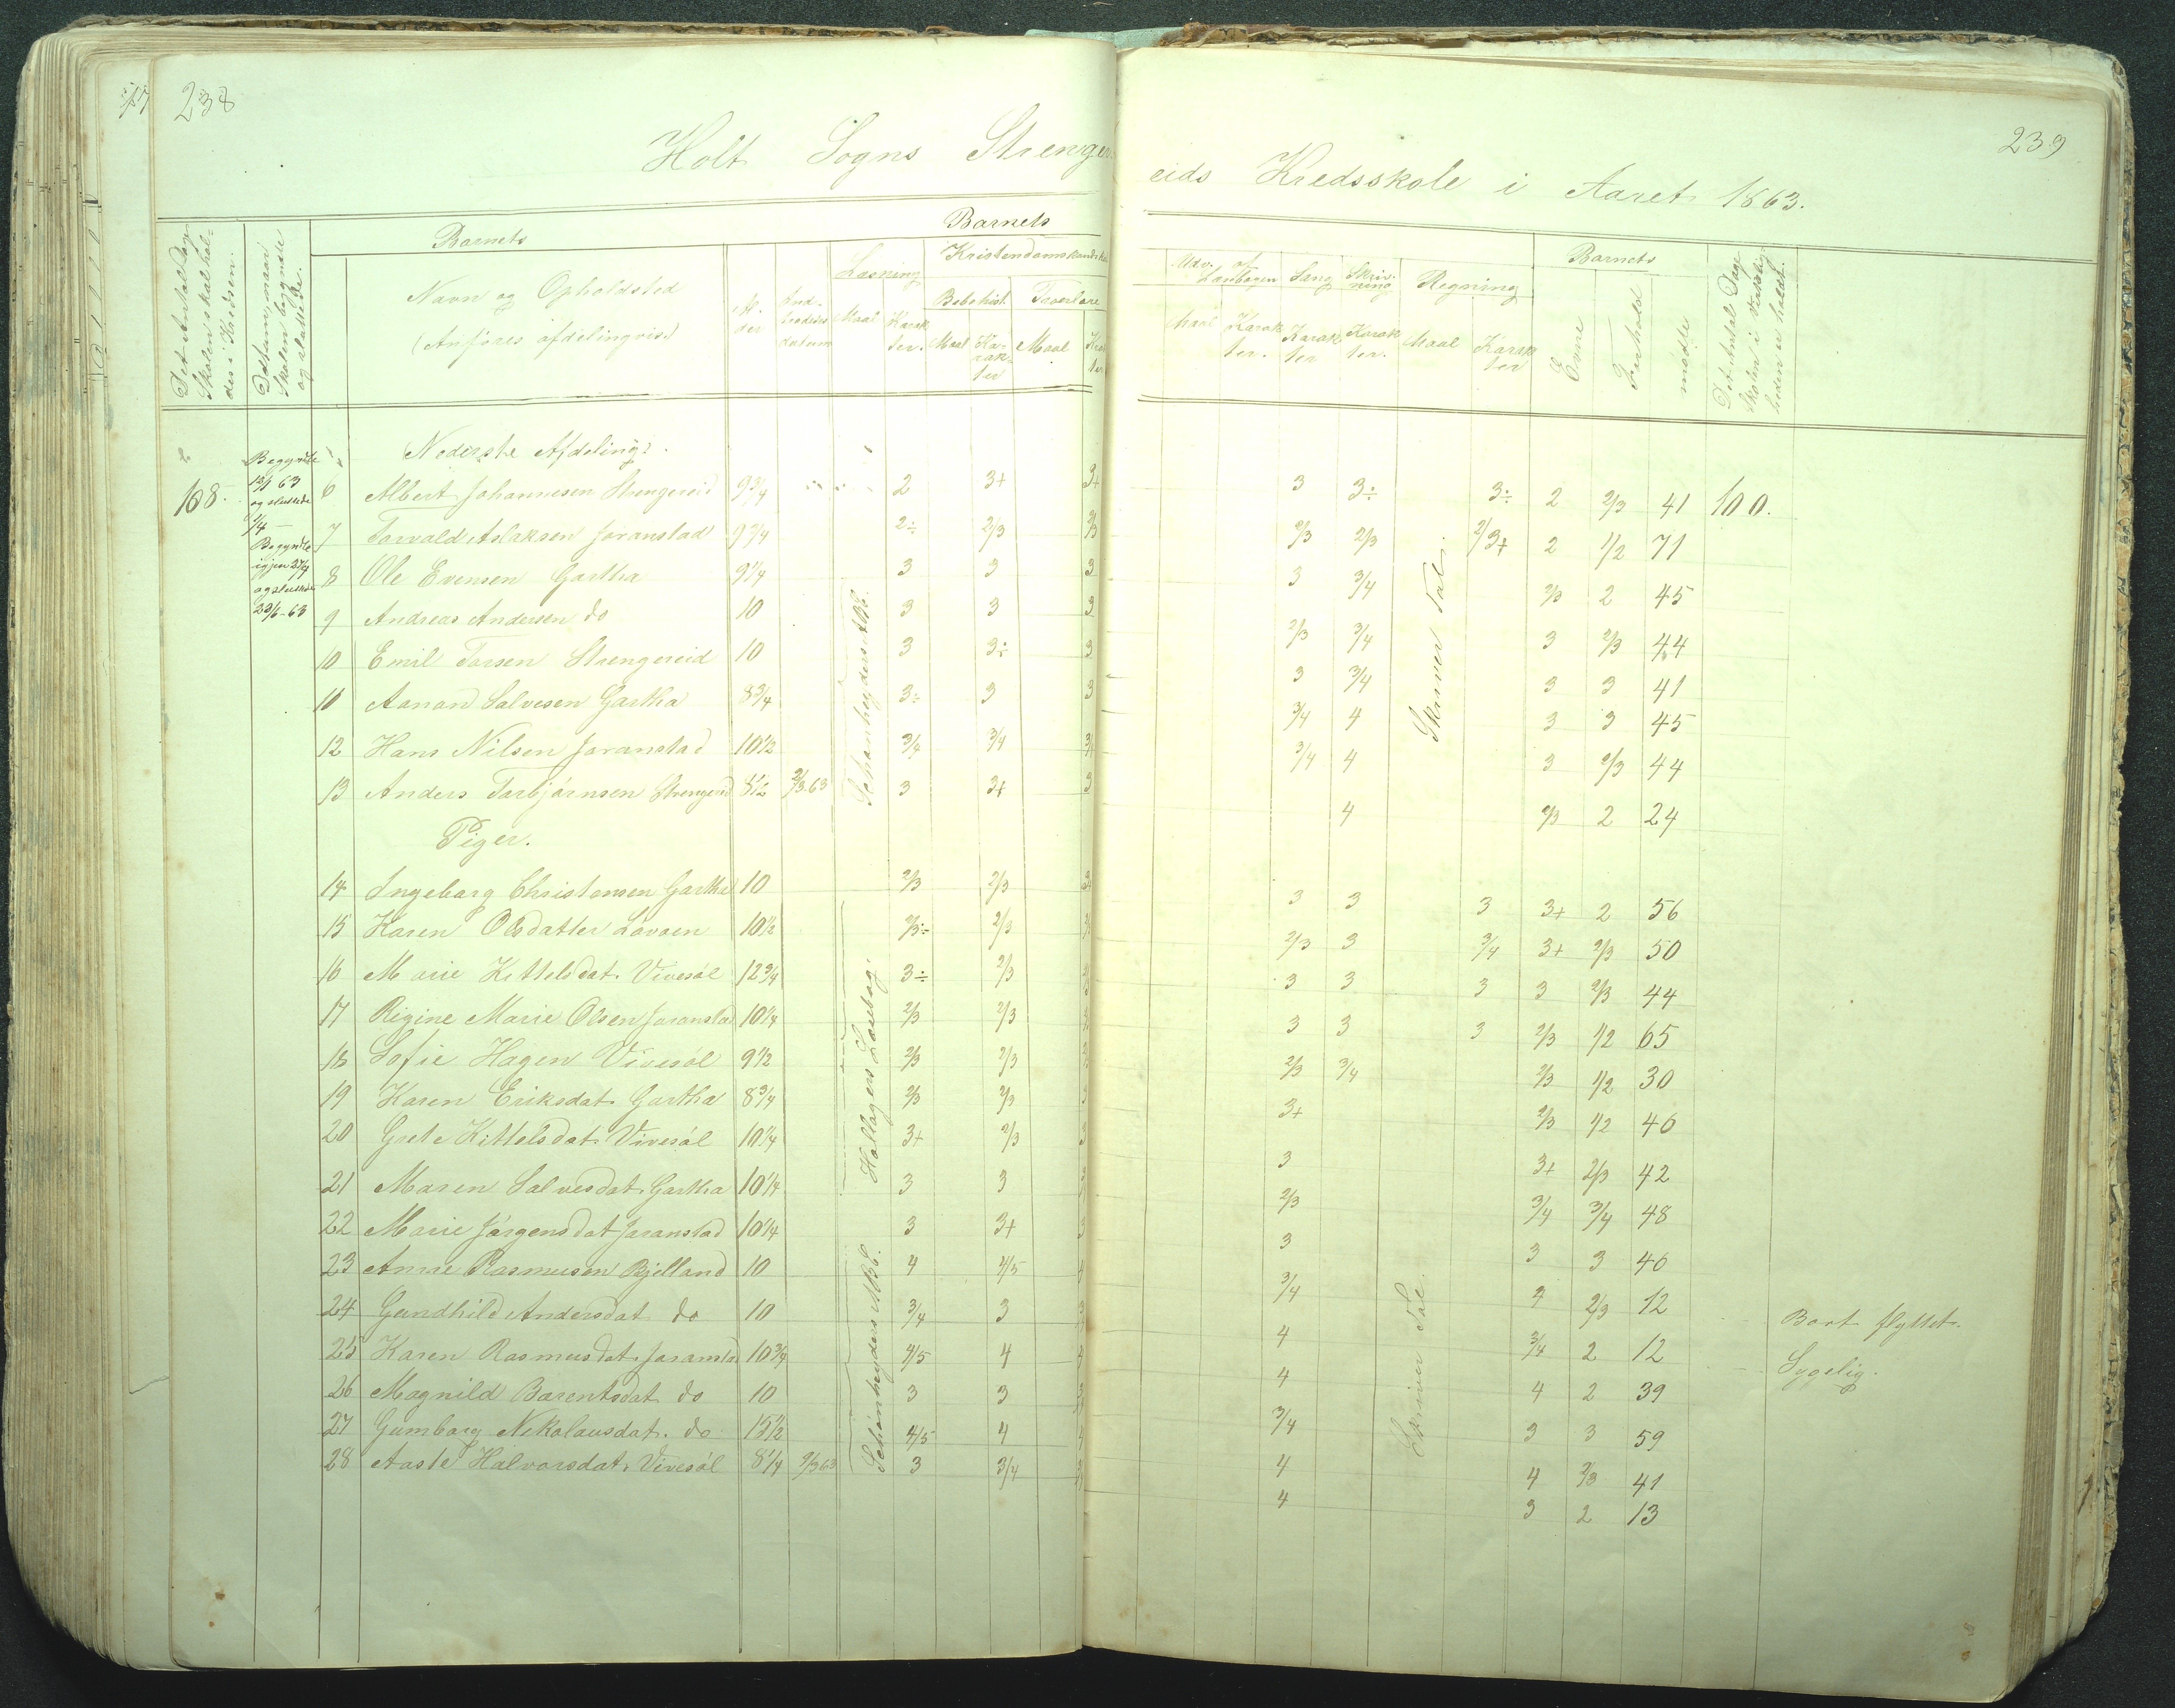 238
239
Holt Sogns Strengereids Kredsskole i Aaret 1863.
Det Antal Dage Skolen skal holdes i Kredsen.
Datum, naar Skolen begyndte og sluttede.
Barnets
Navn og Opholdsted
(Anføres afdelingvis.)
Alder
Indtrædelses datum
Barnets
Læsning
Maal
Karakter.
Kristendomskundskab
Bibelhist.
Maal
Karakter
Troeslære
Maal
Udv. af Læsebogen
Maal
Karakter.
Sang
Karakter
Skrivning
Karakter.
Regning
Maal
Karakter
Barnets
Evne
Forhold
mødte
Det Antal Dage Skolen i Virkeligheden er holdt.
108.
Begyndte 13/1 63 og sluttede 1/4
Begyndte igjen 27/4 og sluttede 23/6-63
Nederste Afdeling.
6 Albert Johannesen Strengereid 9 3/4 2 3+ 3+ 3 3÷ 3÷ 2 2/3 41 100.
7 Torvald Aslaksen Joranstad 9 3/4 2÷ 2/3 2/3 2/3 2/3 2/3+ 2 1/2 71
8 Ole Evensen Gartha 9 1/4 3 3 3 3 3/4 2/3 2 45
9 Andreas Andersen do 10 3 3 3 2/3 3/4 3 2/3 44
10 Emil Torsen Strengereid 10 3 3÷ 3 3 3/4 3 3 41
11 Aanon Salvesen Gartha 8 3/4 3÷ 3 3 3/4 4 3 3 45
12 Hans Nilsen Joranstad 10 1/2 3/4 3/4 3/4 3/4 4 3 2/3 44
13 Anders Torbjørnsen Strengereid 8 1/2 2/3 63 3 3+ 3 4 2/3 2 24
Skriver Tal.
Piger.
14 Ingeborg Christensen Gartha 10 2/3 2/3 3 3 3 3+ 2 56
15 Karen Olsdatter Lovoen 10 1/2 2/3÷ 2/3 2/3 3 3/4 3+ 2/3 50
16 Marie Kittelsdat. Vivesøl 12 3/4 3÷ 2/3 3 3 3 3 2/3 44
17 Regine Marie Olsen Joranstad 10 1/4 2/3 2/3 3 3 3 2/3 1/2 65
18 Sofie Hagen Vivesøl 9 1/2 2/3 2/3 2/3 3/4 2/3 1/2 30
19 Karen Eriksdat. Gartha 8 3/4 2/3 2/3 3 3+ 2/3 1/2 46
20 Grete Kittelsdat. Vivesøl 10 1/4 3+ 2/3 3 3 3+ 2/3 42
21 Maren Salvesdat. Gartha 10 1/4 3 3 3 2/3 3/4 3/4 48
22 Marie Jørgensdat Joranstad 10 1/4 3 3+ 3 3 3 3 46
23 Anne Rasmusen Bjelland 10 4 4/5 3/4 2/3 12 Bort flyttet.
24 Gundhild Andersdat do 10 3/4 3 4 3/4 2 12 Sygelig.
25 Karen Rasmusdat. Joranstad 10 3/4 4/5 4 4 4 2 39
26 Magnild Barentsdat. do 10 3 3 3/4 3 3 59
27 Gumborg Nikolausdat. do 15 1/2 4/5 4 4 4 2/3 41
28 Aaste Halvorsdat. Vivesøl 8 1/4 2/3 63 3 3/4 4 3 2 13
Holtagers Læsebog.
Skriver Tal.